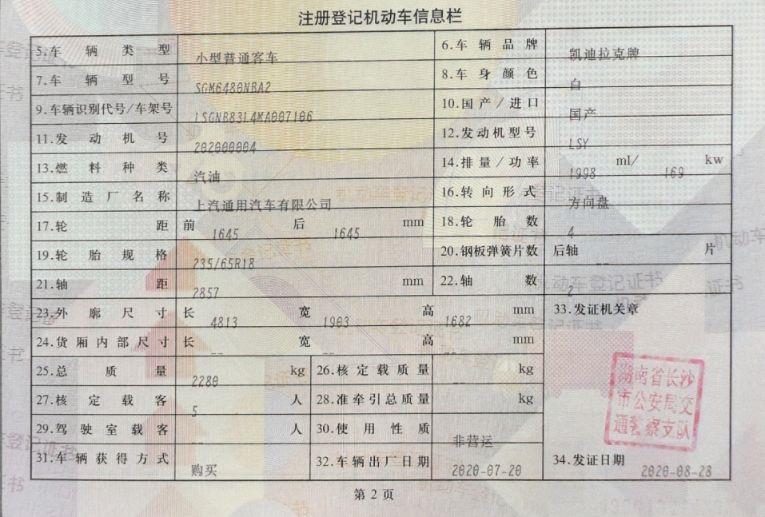 注册登记机动车信息栏
5.车辆类型 小型普通客车 6.车辆品牌 凯迪拉克牌
7.车辆型号 SGM6480NBA2 8.车身颜色 白
9.车辆识别代号/车架号 LSGNB83L4MA007106 10.国产/进口 国产
11.发动机号 202000004 12.发动机型号 LSY
13.燃料种类 汽油 14.排量/功率 1998 ml/ 169 kw
15.制造厂名称 上汽通用汽车有限公司 16.转向形式 方向盘
17.轮距 前 1645 后 1645 mm 18.轮胎数 4
19.轮胎规格 235/65R18 20.钢板弹簧片数 后轴 片
21.轴距 2857 mm 22.轴数 2
23.外廓尺寸 长 4813 宽 1903 高 1682 mm 33.发证机关章
24.货厢内部尺寸 长 宽 高 mm
25.总质量 2280 kg 26.核定载质量 kg
27.核定载客 5 人 28.准牵引总质量 kg
29.驾驶室载客 人 30.使用性质 非营运
31.车辆获得方式 购买 32.车辆出厂日期 2020-07-20 34.发证日期 2020-08-28
湖南省长沙
市公安局交
通警察支队
第2页